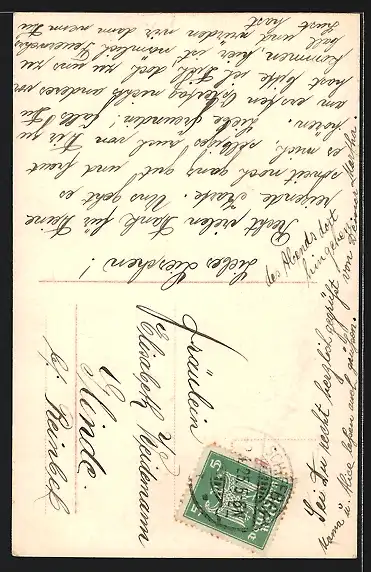 Liebes Lieschen!
Recht vielen Dank für Deine
reizende Karte. Uns geht es
soweit noch ganz gut und freut
es mich, selbiges auch von Dir zu
hören. Liebe Freundin! Falls Du
am ersten Ostertag nichts anderes vor
hast bitte ich Dich doch zu uns zu
kommen, hier ist nämlich Feuerwehr-
ball und würden wir dann wenn Du
Lust hast
des Abends dort
hingehen.
Sei Du recht herzlich gegrüßt von Deiner Martha.
Mama u. Alice lassen auch grüßen.
Fräulein
Elisabeth Heidemann
Glinde
b/ Reinbek
5
5